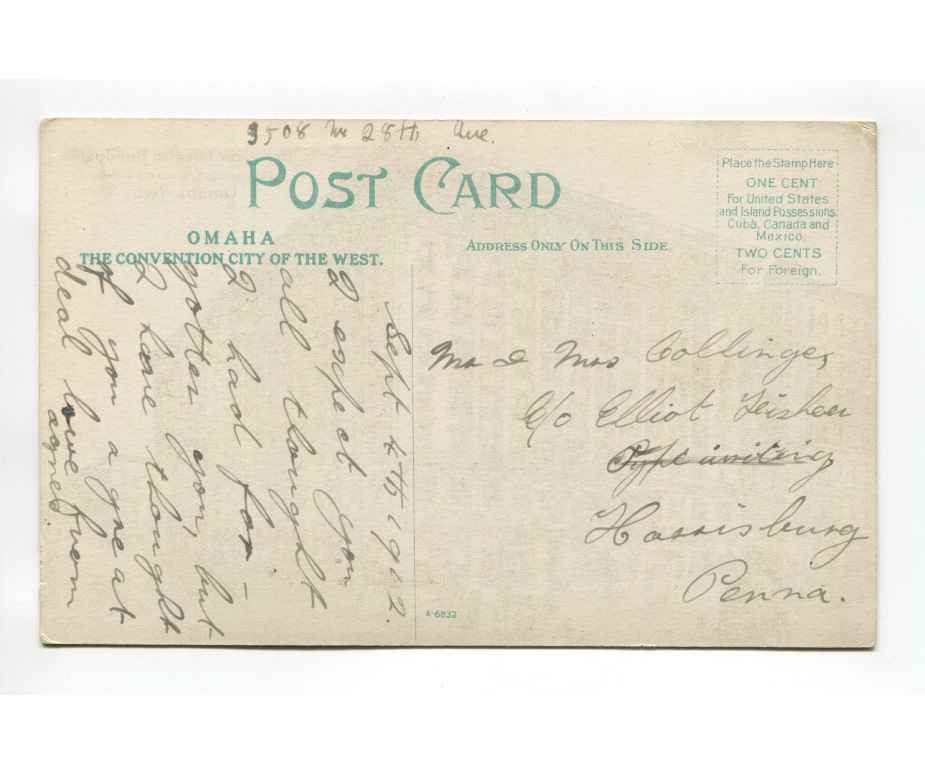 3508 N 28th Ave.
POST CARD
OMAHA
THE CONVENTION CITY OF THE WEST.
ADDRESS ONLY ON THIS SIDE
Place the Stamp Here
ONE CENT
For United States
and Island Possessions,
Cuba, Canada and
Mexico,
TWO CENTS
For Foreign.
Sept 4th 1912
I expect you
all thought
I had for-
gotten you, but
I have thought
of you a great
deal love from
Agnes
Mr & Mrs Collinger,
C/o Elliot Fisher
Type writing
Harrisburg
Penna.
A-6832